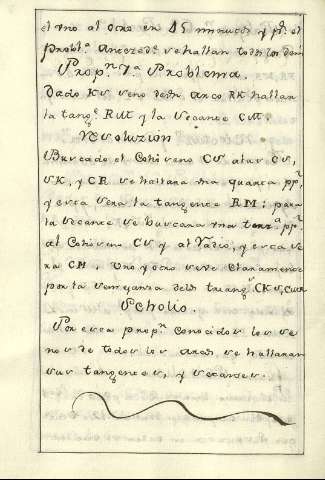 el uno al otro en 15 minutos y pr. el
Probl.ª Anteced.te se hallan todos los
Prop.n 7.ª Problema.
Dado KS seno de un Arco RK hallar
la tang.te RM y la Secante CM.
Resoluzion
Buscado el Cosseno CS, a las CS,
SK, y CR se hallara una quarta pp.l
y esta sera la tangente RM: para
la Secante se buscara una terz.a pp.l
al Cosseno CS y al Radio, y esta se
ra CM, Uno y otro se ve claramente
por la semejanza de los triang.s CKS, CMR
Scholio.
Por esta prop.n conocidos los se
nos de todos los Arcos se hallaran
sus tangentes, y secantes.